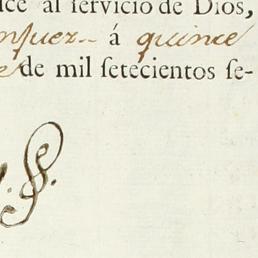 al ſervicio de Dios,
á quince
de mil ſetecientos ſe-